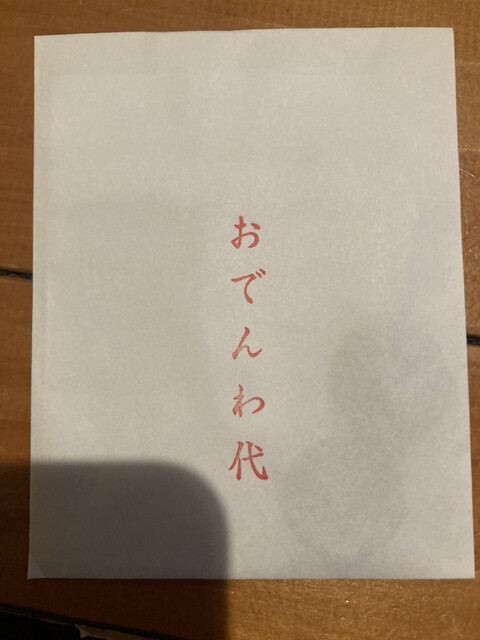 おでんわ代